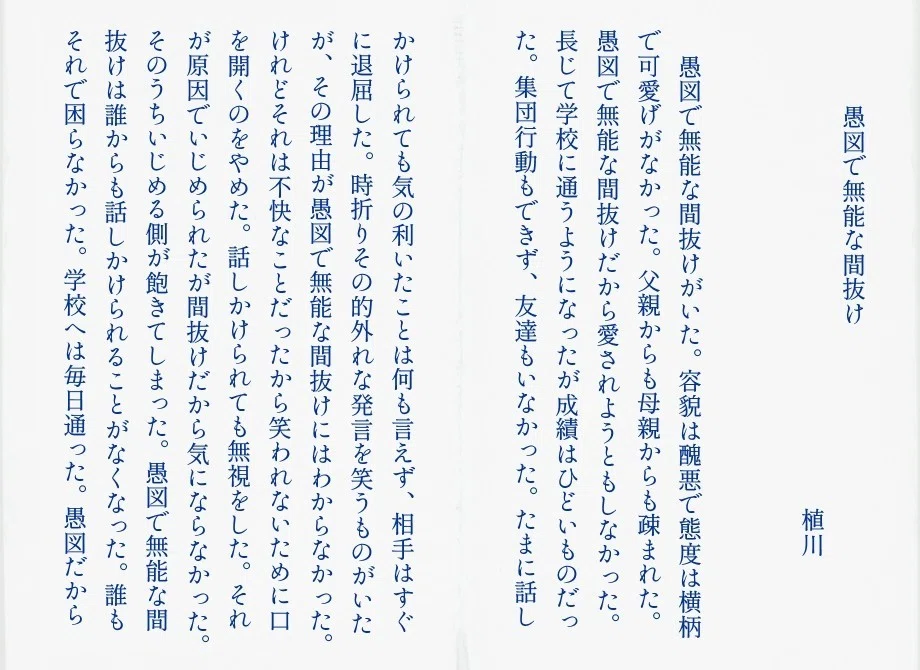 愚図で無能な間抜け
植川
愚図で無能な間抜けがいた。容貌は醜悪で態度は横柄
で可愛げがなかった。父親からも母親からも疎まれた。
愚図で無能な間抜けだから愛されようともしなかった。
長じて学校に通うようになったが成績はひどいものだっ
た。集団行動もできず、友達もいなかった。たまに話し
かけられても気の利いたことは何も言えず、相手はすぐ
に退屈した。時折りその的外れな発言を笑うものがいた
が、その理由が愚図で無能な間抜けにはわからなかった。
けれどそれは不快なことだったから笑われないために口
を開くのをやめた。話しかけられても無視をした。それ
が原因でいじめられたが間抜けだから気にならなかった。
そのうちいじめる側が飽きてしまった。愚図で無能な間
抜けは誰からも話しかけられることがなくなった。誰も
それで困らなかった。学校へは毎日通った。愚図だから